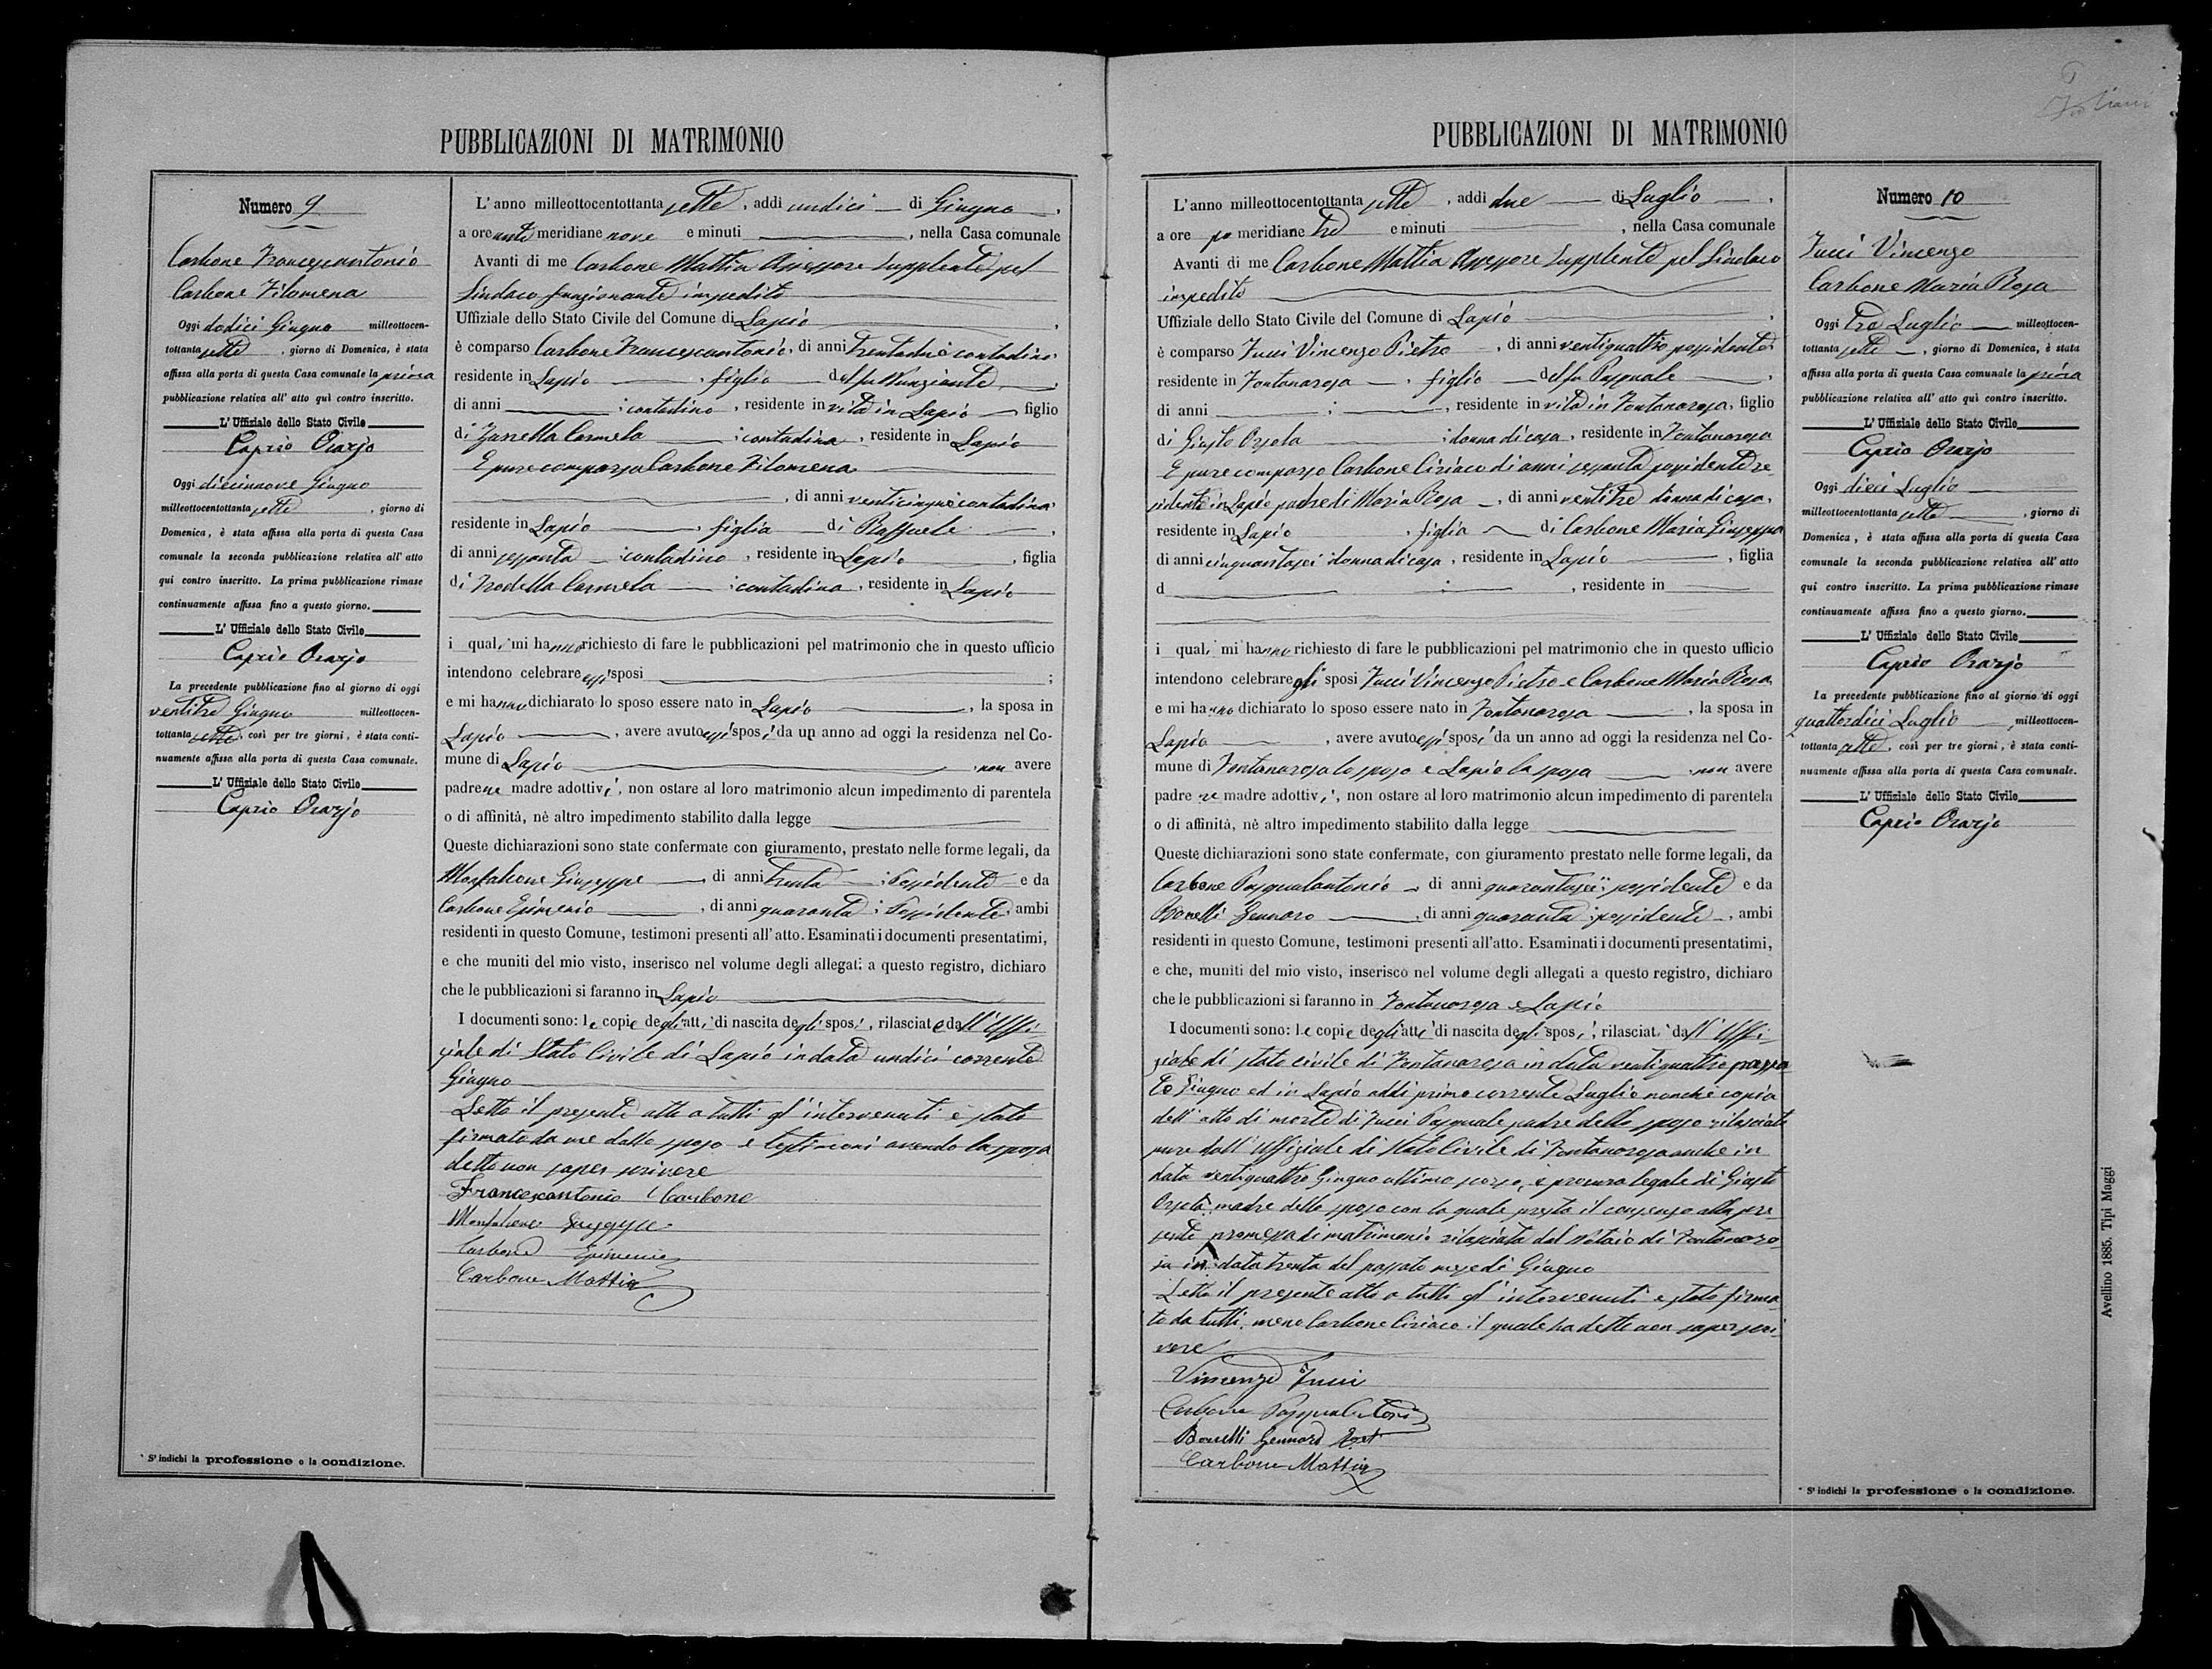 PUBBLICAZIONI DI MATRIMONIO
Numero 9
Carbone Francescantonio
Carbone Filomena
Oggi dodici Giugno milleottocen-
tottanta sette, giorno di Domenica, è stata
affissa alla porta di questa Casa comunale la prima
pubblicazione relativa all' atto quì contro inscritto.
L' Uffiziale dello Stato Civile
Caprio Orazio
Oggi diecinnove Giugno
milleottocentottanta sette, giorno di
Domenica, è stata affissa alla porta di questa Casa
comunale la seconda pubblicazione relativa all' atto
qui contro inscritto. La prima pubblicazione rimase
continuamente affissa fino a questo giorno.
L' Uffiziale dello Stato Civile
Caprio Orazio
La precedente pubblicazione fino al giorno di oggi
ventitre Giugno milleottocen-
tottanta sette, così per tre giorni, è stata conti-
nuamente affissa alla porta di questa Casa comunale.
L' Uffiziale dello Stato Civile
Caprio Orazio
* S' indichi la professione o la condizione.
L' anno milleottocentottanta sette, addì undici di Giugno,
a ore anti meridiane nove e minuti , nella Casa comunale
Avanti di me Carbone Mattia Assessore Supplente pel
Sindaco funzionante impedito
Uffiziale dello Stato Civile del Comune di Lapio,
è comparso Carbone Francescantonio, di anni trentadue contadino
residente in Lapio, figlio del fu Nunziante,
di anni ; contadino, residente in vita in Lapio figlio
di Zarrella Carmela ; contadina, residente in Lapio
E pure comparsa Carbone Filomena
, di anni venticinque contadina
residente in Lapio, figlia di Raffaele,
di anni sessanta ; contadino, residente in Lapio, figlia
di Trodella Carmela ; contadina, residente in Lapio
i quali mi hanno richiesto di fare le pubblicazioni pel matrimonio che in questo ufficio
intendono celebrare essi sposi ;
e mi hanno dichiarato lo sposo essere nato in Lapio, la sposa in
Lapio, avere avuto essi sposi da un anno ad oggi la residenza nel Co-
mune di Lapio, non avere
padre ne madre adottivi, non ostare al loro matrimonio alcun impedimento di parentela
o di affinità, nè altro impedimento stabilito dalla legge
Queste dichiarazioni sono state confermate con giuramento, prestato nelle forme legali, da
Morfalcone Giuseppe, di anni trenta ; Possidente e da
Carbone Epimenio, di anni quaranta ; Possidente, ambi
residenti in questo Comune, testimoni presenti all' atto. Esaminati i documenti presentatimi,
e che muniti del mio visto, inserisco nel volume degli allegati a questo registro, dichiaro
che le pubblicazioni si faranno in Lapio
I documenti sono: le copie degli atti di nascita degli sposi, rilasciate dall' Uffi
ziale di Stato Civile di Lapio in data undici corrente
Giugno
Letto il presente atto a tutti gl' intervenuti è stato
firmato da me dallo sposo e testimoni avendo la sposa
detto non saper scrivere
Francescantonio Carbone
Giuseppe
Carbone Epimenio
Carbone Mattia
PUBBLICAZIONI DI MATRIMONIO
L' anno milleottocentottanta sette, addì due di Luglio,
a ore po meridiane tre e minuti , nella Casa comunale
Avanti di me Carbone Mattia Assessore Supplente pel Sindaco
impedito
Uffiziale dello Stato Civile del Comune di Lapio,
è comparso Tucci Vincenzo Pietro, di anni ventiquattro possidente
residente in Fontanarosa, figlio del fu Pasquale,
di anni ; , residente in vita in Fontanarosa, figlio
di Giusto Orsola ; donna di casa, residente in Fontanarosa
E pure comparso Carbone Ciriaco di anni sessanta possidente re
sidente in Lapio padre di Maria Rosa, di anni ventitre donna di casa,
residente in Lapio, figlia di Carbone Maria Giuseppa
di anni cinquantasei donna di casa, residente in Lapio, figlia
d ; , residente in
i quali mi hanno richiesto di fare le pubblicazioni pel matrimonio che in questo ufficio
intendono celebrare gli sposi Tucci Vincenzo Pietro e Carbone Maria Rosa
e mi hanno dichiarato lo sposo essere nato in Fontanarosa, la sposa in
Lapio, avere avuto essi sposi da un anno ad oggi la residenza nel Co-
mune di Fontanarosa lo sposo e Lapio la sposa, non avere
padre ne madre adottivi, non ostare al loro matrimonio alcun impedimento di parentela
o di affinità, nè altro impedimento stabilito dalla legge
Queste dichiarazioni sono state confermate, con giuramento prestato nelle forme legali, da
Carbone Pasqualantonio, di anni quarantasei ; possidente e da
Bonelli Gennaro, di anni quaranta ; possidente, ambi
residenti in questo Comune, testimoni presenti all'atto. Esaminati i documenti presentatimi,
e che, muniti del mio visto, inserisco nel volume degli allegati a questo registro, dichiaro
che le pubblicazioni si faranno in Fontanarosa e Lapio
I documenti sono: le copie degli atti di nascita degli sposi, rilasciat dall' Uffi
ziale di stato civile di Fontanarosa in data ventiquattro passa
to Giugno ed in Lapio addì primo corrente Luglio nonchè copia
dell' atto di morte di Tucci Pasquale padre dello sposo rilasciato
pure dall' Uffiziale di Stato Civile di Fontanarosa anche in
data ventiquattro Giugno ultimo scorso, e procura legale di Giusto
Orsola madre dello sposo con la quale presta il consenso alla pre
sente promessa di matrimonio rilasciata dal Notaio di Fontanaro
sa in data trenta del passato mese di Giugno
Letto il presente atto a tutti gl' intervenuti è stato firma
to da tutti, meno Carbone Ciriaco il quale ha detto non saper scri
vere
Vincenzo Tucci
Carbone Pasqualantonio
Bonelli Gennaro
Carbone Mattia
Numero 10
Tucci Vincenzo
Carbone Maria Rosa
Oggi tre Luglio milleottocen-
tottanta sette, giorno di Domenica, è stata
affissa alla porta di questa Casa comunale la prima
pubblicazione relativa all' atto quì contro inscritto.
L' Uffiziale dello Stato Civile
Caprio Orazio
Oggi dieci Luglio
milleottocentottanta sette, giorno di
Domenica, è stata affissa alla porta di questa Casa
comunale la seconda pubblicazione relativa all' atto
quì contro inscritto. La prima pubblicazione rimase
continuamente affissa fino a questo giorno.
L' Uffiziale dello Stato Civile
Caprio Orazio
La precedente pubblicazione fino al giorno di oggi
quattordici Luglio, milleottocen-
tottanta sette, così per tre giorni, è stata conti-
nuamente affissa alla porta di questa Casa comunale.
L' Uffiziale dello Stato Civile
Caprio Orazio
* S' indichi la professione o la condizione.
Avellino 1885. Tipi Maggi